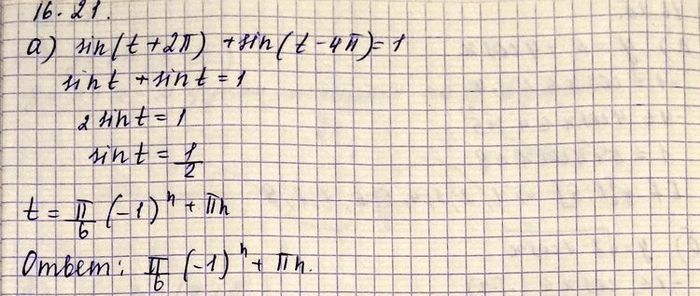 16.21.
а) sin(t+2π) +sin(t-4π)=1
sint +sint =1
2 sint = 1
sint = 1/2
t = π/6 (-1)ⁿ + πn
Ответ: π/6 (-1)ⁿ + πn.